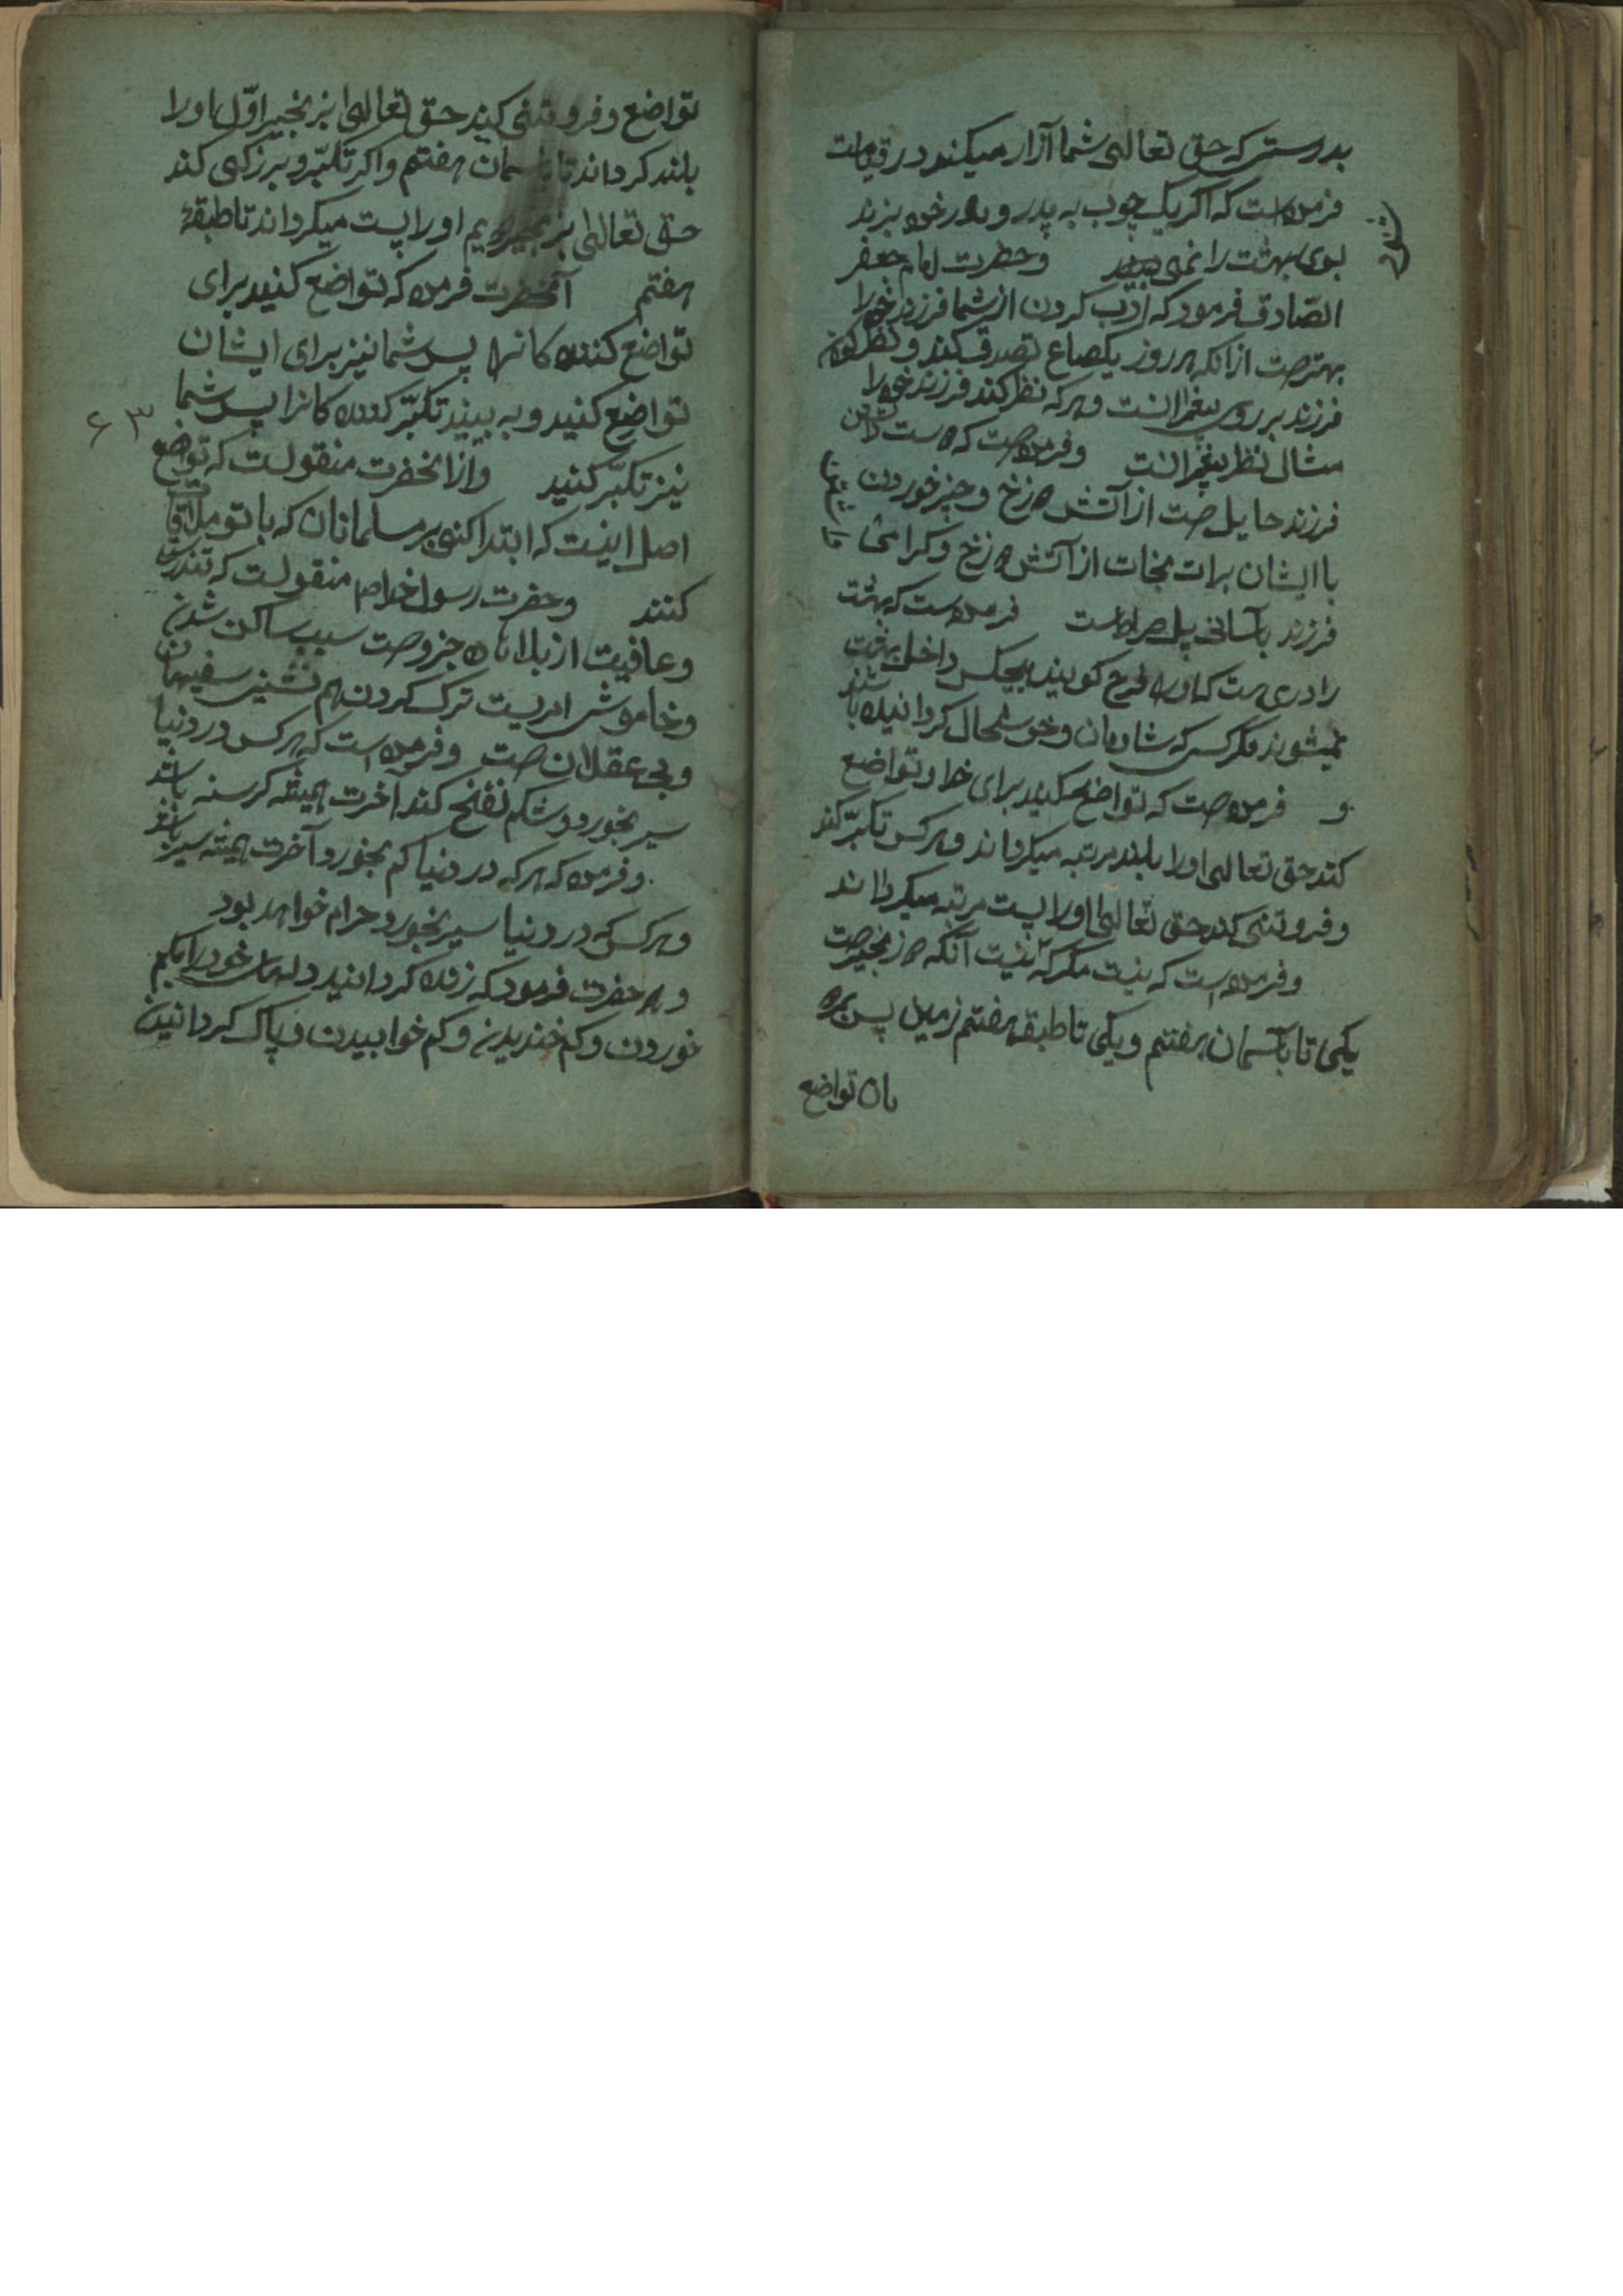 بدرستی که حق تعالی شما آزار میکند در قیامت
فرموده است که اگر یک چوب به پدر و مادر خود بزند
بوی بهشت را نمی بیند وحضرت امام جعفر
الصّادق فرمود که ادب کردن از شما فرزند خود را
بهترست از انکه هر روز یکصاع تصدق کند و نظر کردن
فرزند بر روی پیغمبرانست وهر که نظر کند فرزند خود را
مثال نظر پیغمبرانست وفرموده است که دوست داشتن
فرزند حایل است از آتش دوزخ وچیز خوردن
با ایشان برات نجات از آتش دوزخ وکرامی
فرزند بآسانی پل صراط است فرموده است که بهشت
را دری هست که اورا فرح کویند هیچکس داخل بهشت
نمیشوند مکر کسی که شادمان وخوشحال کردانیده باشند
و فرموده است که تواضع کنید برای خدا وتواضع
کند حق تعالی اورا بلند مرتبه میکرداند وهر کس تکبّر کند
وفروتنی کند حق تعالی اورا پست مرتبه میکرداند
وفرموده است که نیست مکر که نیست آنکه دو زنجیرست
یکی تا بآسمان هفتم ویکی تا طبقه هفتم زمین پس هر
تواضع
تواضع وفروتنی کند حق تعالی بزنجیر اوّل اورا
بلند کرداند تا بآسمان هفتم واکر تکبّر وبزرکی کند
حق تعالی بزنجیر دویم اورا پست میکرداند تا طبقهٔ
هفتم آنحضرت فرموده که تواضع کنید برای
تواضع کننده کانرا پس شما نیز برای ایشان
تواضع کنید و به بینید تکبّر کننده کانرا پس شما
نیز تکبّر کنید وازانحضرت منقولست که تواضع
اصل اینست که ابتدا کنی بر مسلمانان که با تو ملاقات
کنند وحضرت رسول خدا ص منقولست که تندرستی
وعافیت از بلاها ده جزوست سبب ساکن شدن
وخاموش امریست ترک کردن هم نشینی سفیهان
وبی عقلان است وفرموده است که هر کس در دنیا
سیر بخورد وشکم نفخ کند آخرت همیشه کرسنه باشد
وفرموده که هر که در دنیا کم بخورد آخرت همیشه سیر باشد
وهر کس که در دنیا سیر بخورد حرام خواهد بود
وهم حضرت فرمود که زنده کردانید دلهای خود را بکم
خوردن وکم خندیدن وکم خوابیدن وپاک کردانیدن
۶۳